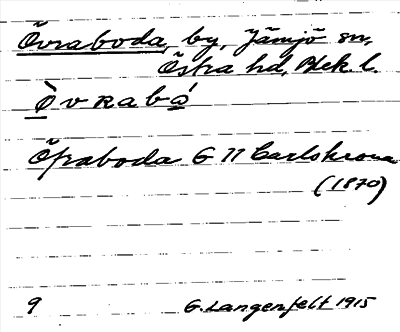 Övraboda, by, Jämjö sn,
Östra hd, Blek. l.
Òvrabó
Öfraboda G 77 Carlskrona
(1870)
9 G. Langenfelt 1915